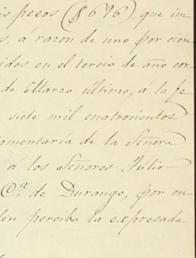 is pesos ($696), que im
s, á razon de uno por cien
idos en el tercio de año cor
de Marzo ultimo, á la fe
siete mil cuatrocientos
amentaría de la Señora
á los Señores Julio
Cª. de Durango, por cu
den percibe la expresada